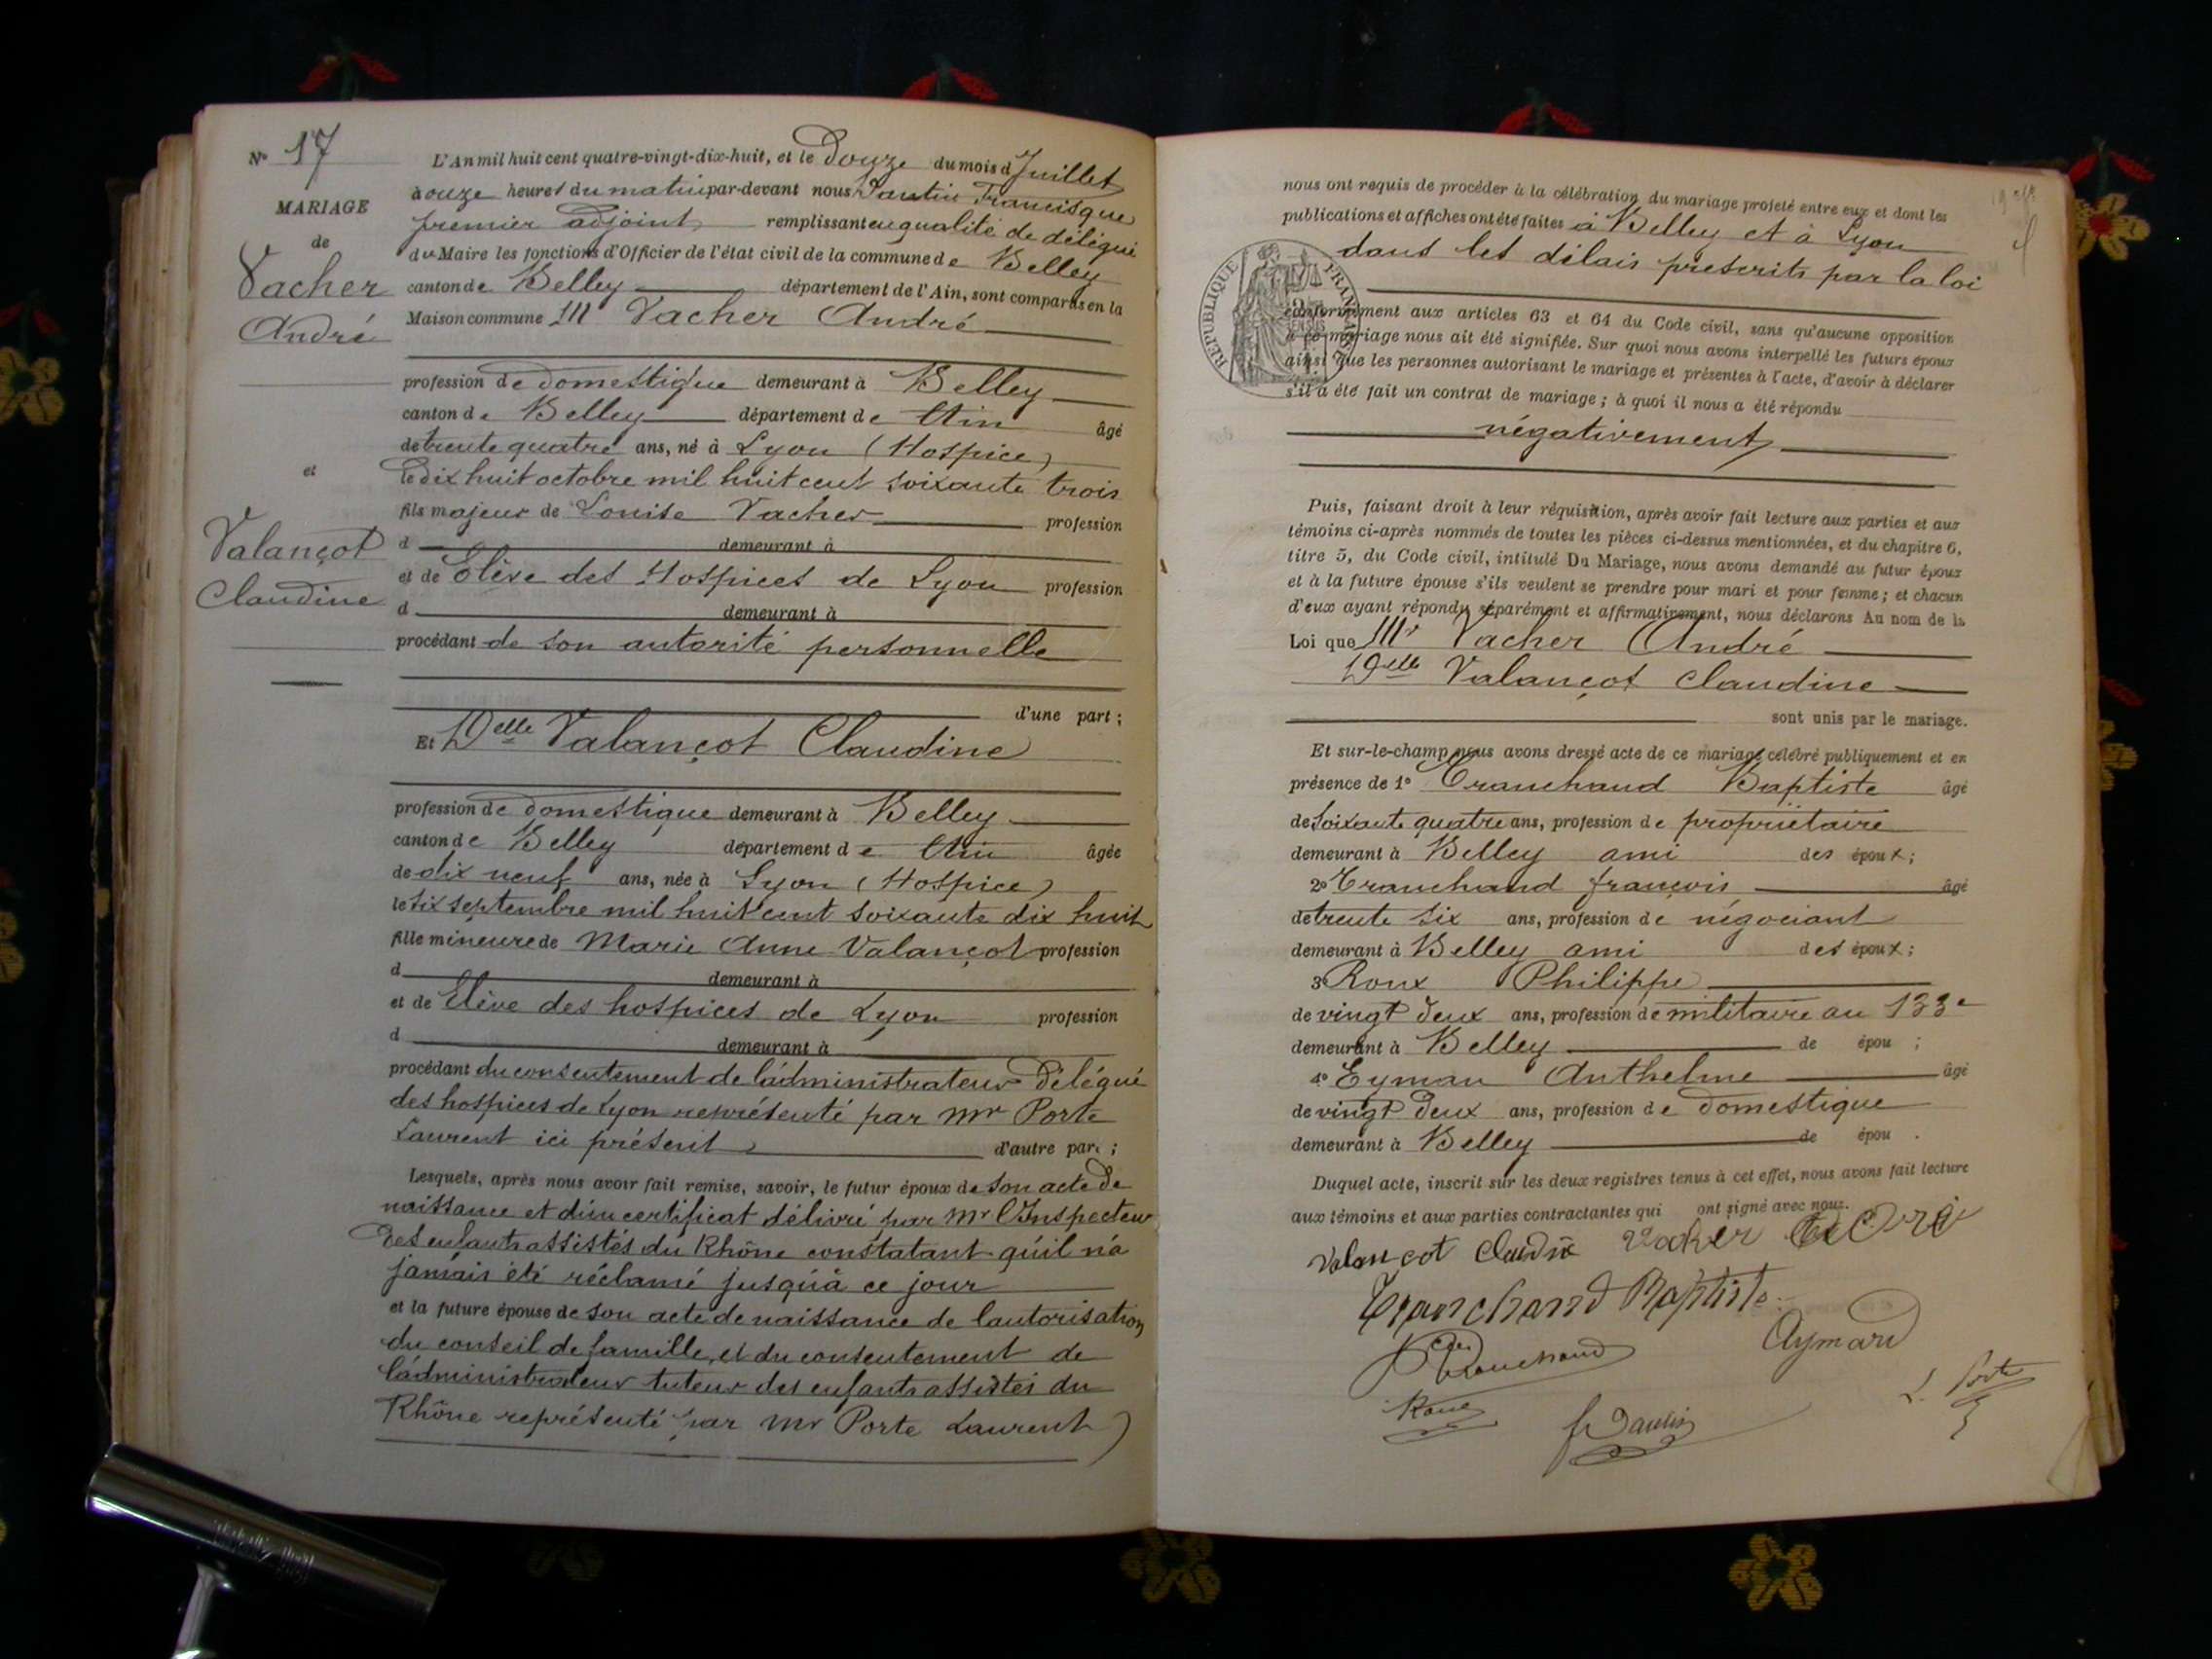 N° 17
MARIAGE
de
Vacher
André
et
Valançot
Claudine
L'An mil huit cent quatre-vingt-dix-huit, et le Douze du mois d Juillet
à onze heures du matin par-devant nous Dantin Francisque
premier adjoint remplissant en qualité de délégué
du Maire les fonctions d'Officier de l'état civil de la commune de Belley
canton de Belley département de l'Ain, sont comparus en la
Maison commune M Vacher André
profession de domestique demeurant à Belley
canton de Belley département de Ain âgé
de trente quatre ans, né à Lyon (Hospice)
le dix huit octobre mil huit cent soixante trois
fils majeur de Louise Vacher profession
d demeurant à
et de Elève des Hospices de Lyon profession
d demeurant à
procédant de son autorité personnelle
d'une part ;
Et Delle Valançot Claudine
profession de domestique demeurant à Belley
canton de Belley département de Ain âgée
de dix neuf ans, née à Lyon (Hospice)
le six septembre mil huit cent soixante dix huit
fille mineure de Marie Anne Valançot profession
d demeurant à
et de Elève des hospices de Lyon profession
d demeurant à
procédant du consentement de l'administrateur Délégué
des hospices de Lyon représenté par Mr Porte
Laurent ici présent d'autre part ;
Lesquels, après nous avoir fait remise, savoir, le futur époux de son acte de
naissance et d'un certificat délivré par Mr l'Inspecteur
des enfants assistés du Rhône constatant qu'il n'a
jamais été réclamé jusqu'à ce jour
et la future épouse de son acte de naissance de l'autorisation
du conseil de famille, et du consentement de
l'administrateur tuteur des enfants assistés du
Rhône représenté par Mr Porte Laurent
nous ont requis de procéder à la célébration du mariage projeté entre eux et dont les
publications et affiches ont été faites à Belley et à Lyon
dans les délais prescrits par la loi
RÉPUBLIQUE FRANÇAISE
conformément aux articles 63 et 64 du Code civil, sans qu'aucune opposition
à ce mariage nous ait été signifiée. Sur quoi nous avons interpellé les futurs époux
ainsi que les personnes autorisant le mariage et présentes à l'acte, d'avoir à déclarer
s'il a été fait un contrat de mariage ; à quoi il nous a été répondu
négativement
Puis, faisant droit à leur réquisition, après avoir fait lecture aux parties et aux
témoins ci-après nommés de toutes les pièces ci-dessus mentionnées, et du chapitre 6,
titre 5, du Code civil, intitulé Du Mariage, nous avons demandé au futur époux
et à la future épouse s'ils veulent se prendre pour mari et pour femme ; et chacun
d'eux ayant répondu séparément et affirmativement, nous déclarons Au nom de la
Loi que Mr Vacher André
Delle Valançot Claudine
sont unis par le mariage.
Et sur-le-champ nous avons dressé acte de ce mariage célébré publiquement et en
présence de 1° Tranchand Baptiste âgé
de soixante quatre ans, profession de propriétaire
demeurant à Belley ami des époux ;
2° Tranchand françois âgé
de trente six ans, profession de négociant
demeurant à Belley ami des époux ;
3° Roux Philippe
de vingt deux ans, profession de militaire au 133e
demeurant à Belley de épou ;
4° Eyman Anthelme âgé
de vingt deux ans, profession de domestique
demeurant à Belley de épou .
Duquel acte, inscrit sur les deux registres tenus à cet effet, nous avons fait lecture
aux témoins et aux parties contractantes qui ont signé avec nous.
Valançot Claudine Vacher
Tranchand Baptiste
Tranchand Aymard
Roux L. Porte